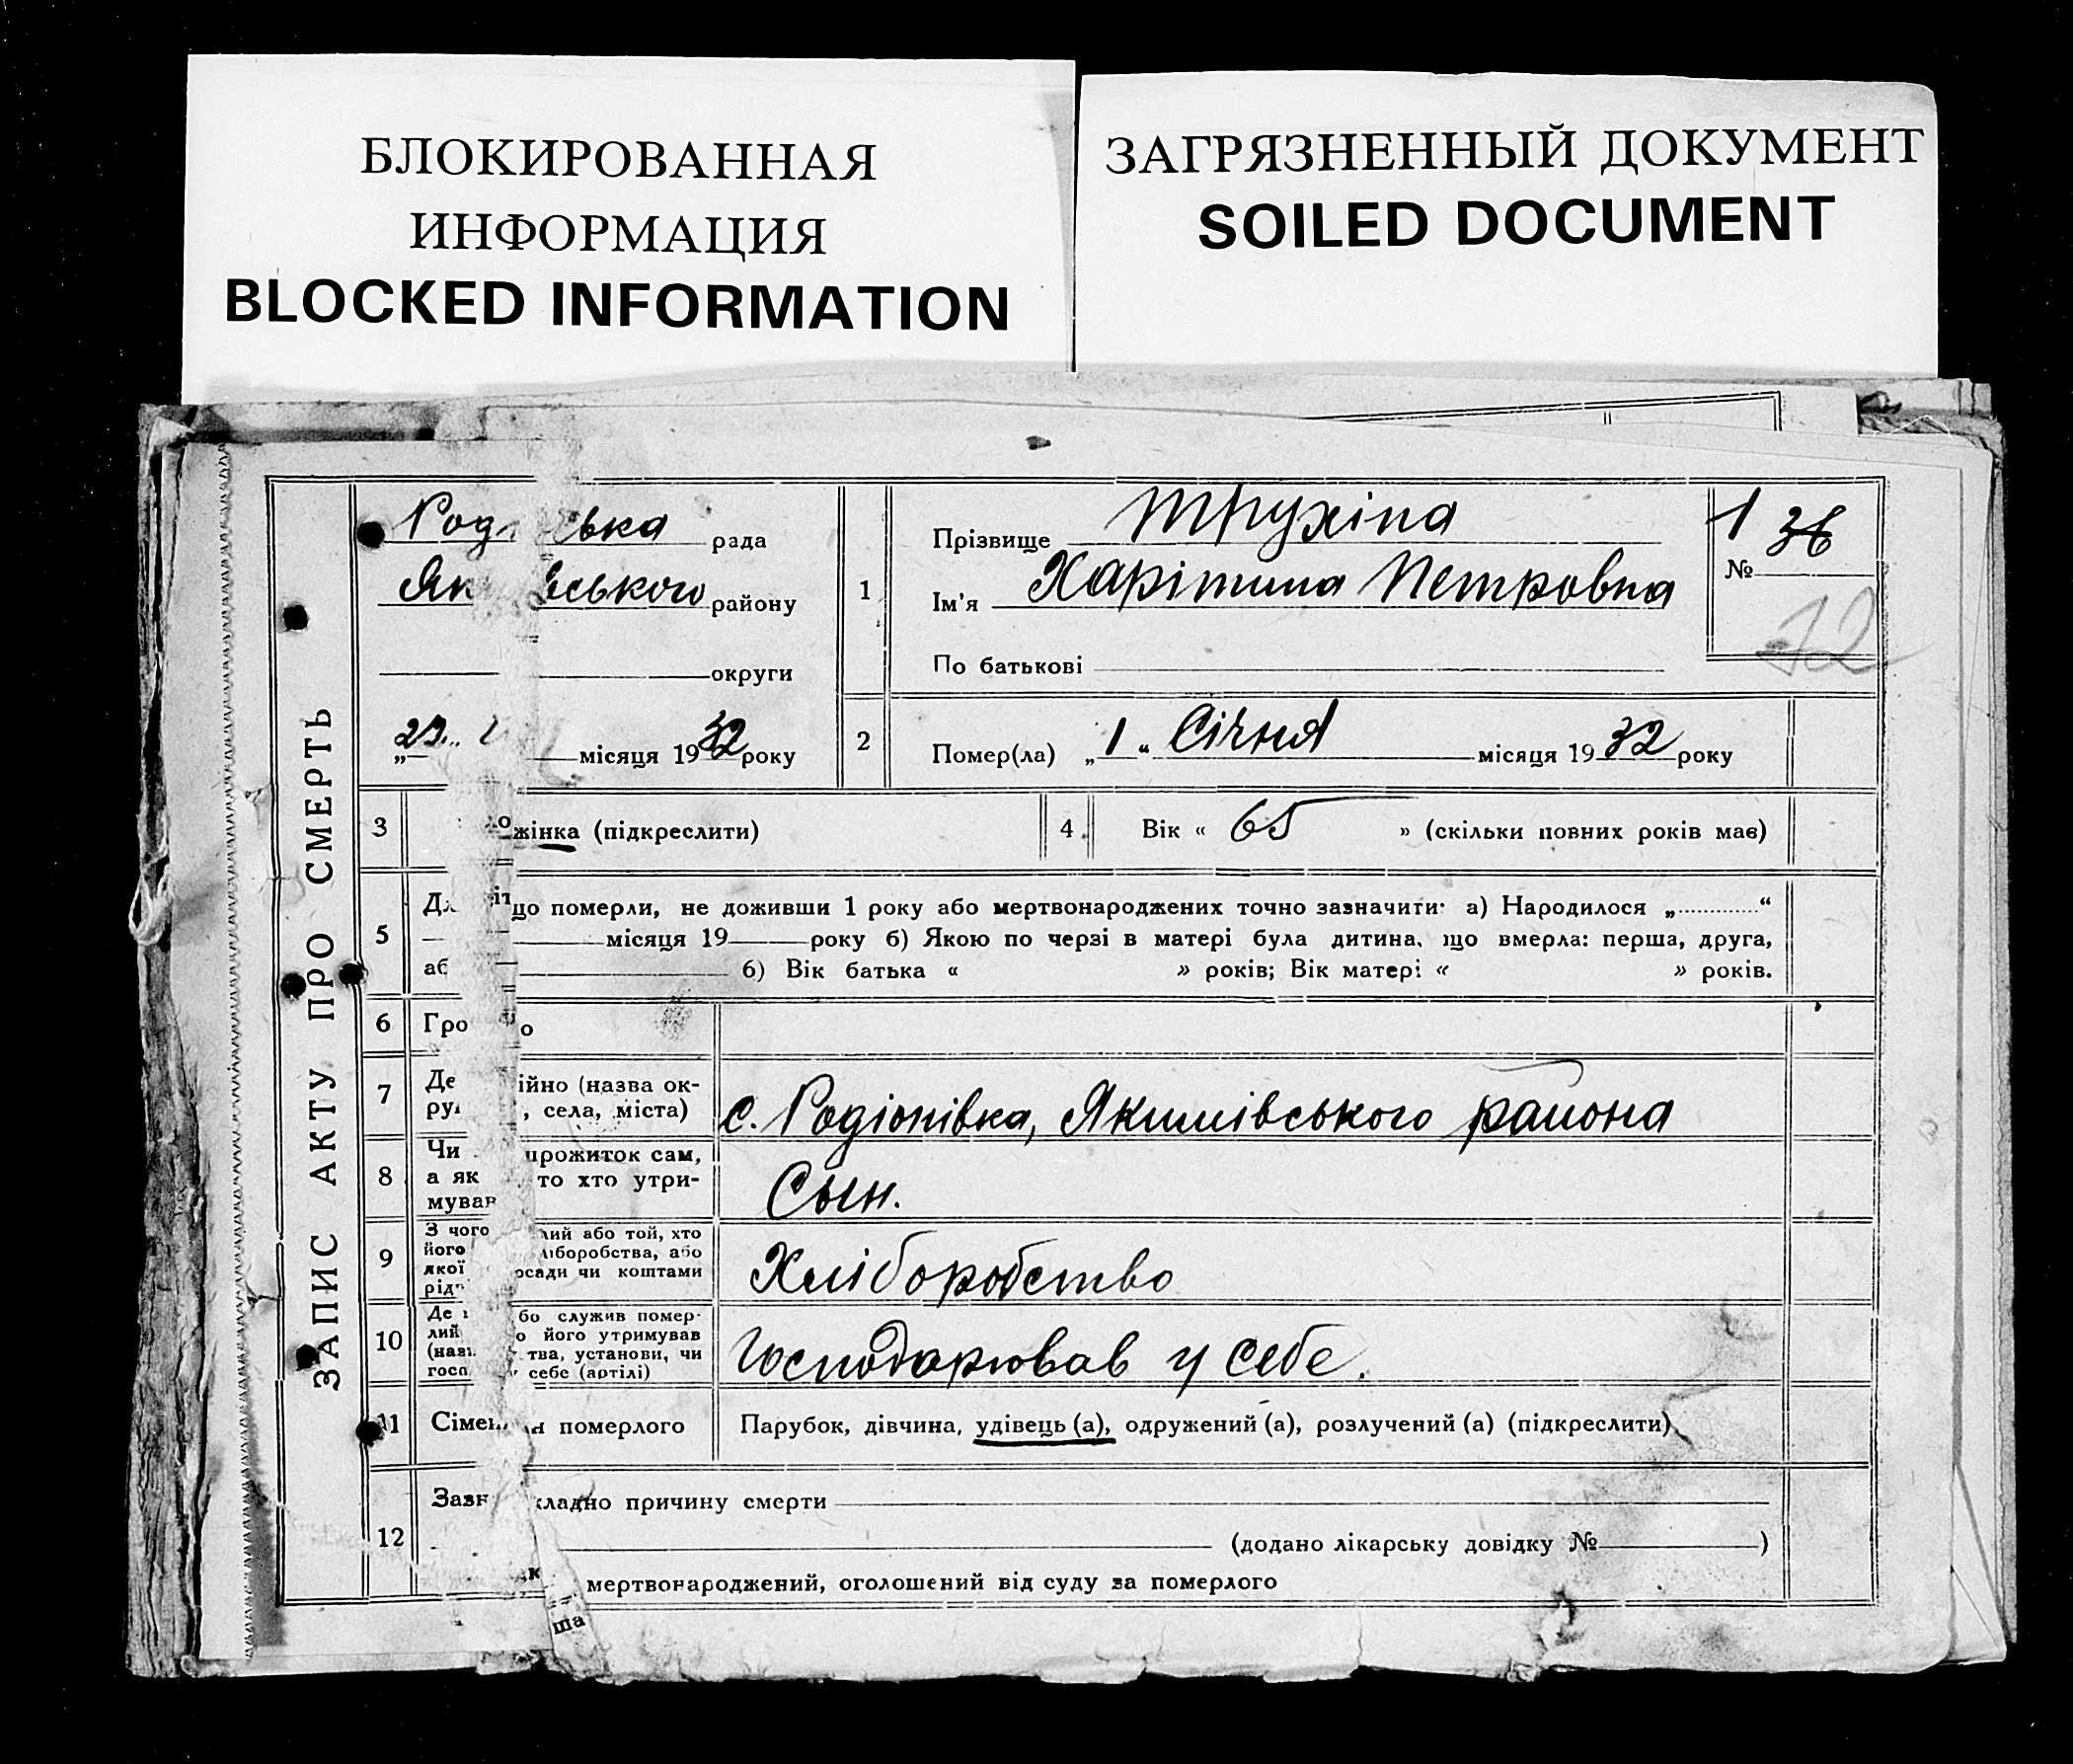 БЛОКИРОВАННАЯ
ИНФОРМАЦИЯ
BLOCKED INFORMATION
ЗАГРЯЗНЕННЫЙ ДОКУМЕНТ
SOILED DOCUMENT
ЗАПИС АКТУ ПРО СМЕРТЬ
рада
району
округи
„29 місяця 1932 року
1
Прізвище Трухіна
Ім'я Харітина Петровна
По батькові
1 36
№
72
2 Помер(ла) „1“ Січня місяця 1932 року
3 жінка (підкреслити)
4 Вік « 65 » (скільки повних років має)
5 що померли, не доживши 1 року або мертвонароджених точно зазначити: а) Народилося „ “
місяця 19 року б) Якою по черзі в матері була дитина, що вмерла: перша, друга,
6) Вік батька « » років; Вік матері « » років.
6 Гро о
7 Де ійно (назва ок-
, села, міста) с. Родіонівка, Якимівського района
8 Чи прожиток сам,
а як то хто утри-
мував Сын.
9 З чого лий або той, хто
його ліборобства, або
якої осади чи коштами
Хліборобство
10 Де бо служив помер-
лий о його утримував
тва, установи, чи
себе (артілі) Господарював у себе.
11 Сімен н померлого Парубок, дівчина, удівець (а), одружений (а), розлучений (а) (підкреслити)
12 кладно причину смерти
(додано лікарську довідку № )
мертвонароджений, оголошений від суду за померлого
ша